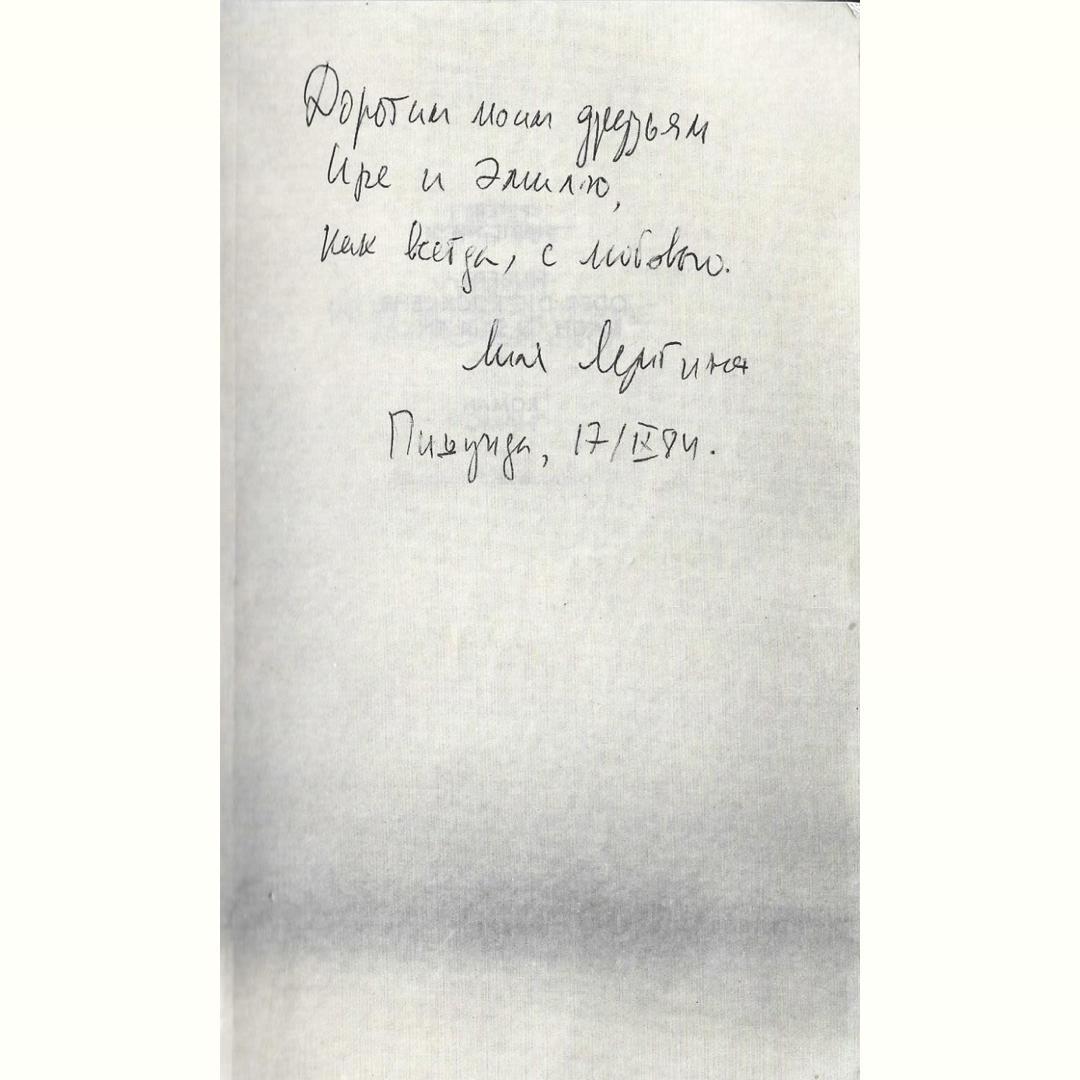 Дорогим моим друзьям
Ире и Эмилю,
как всегда, с любовью.
Лиля Лунгина
Пицунда, 17/IX 84.